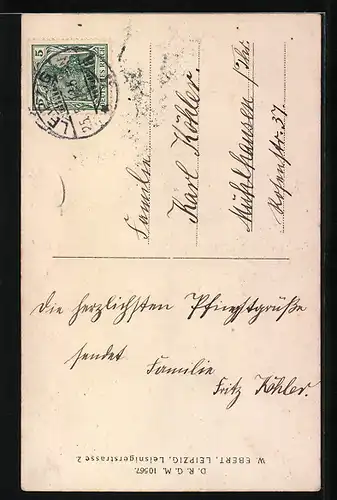 5
LEIPZIG
Familie
Karl Köhler.
Mühlhausen i/Thr.
Rosenstr. 37.
Die herzlichsten Pfingstgrüße
sendet Familie
Fritz Köhler.
D. R. G. M. 10567.
W. EBERT, LEIPZIG, Leisnigerstrasse 2